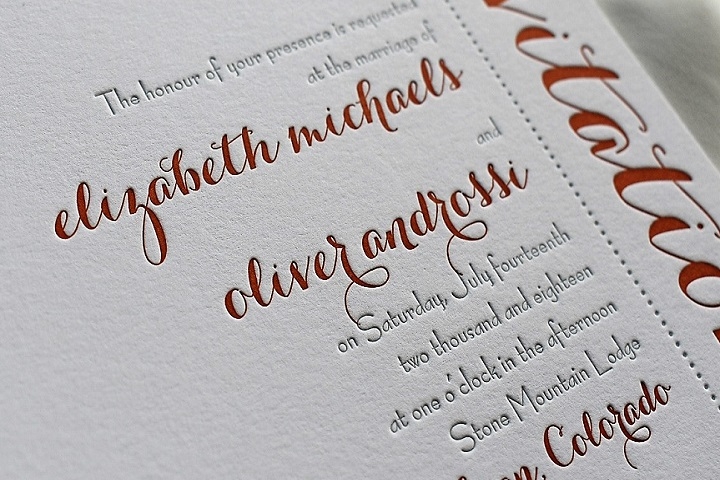 The honour of your presence is requested
at the marriage of
elizabeth michaels
and
oliver androssi
on Saturday, July fourteenth
two thousand and eighteen
at one o'clock in the afternoon
Stone Mountain Lodge
Colorado